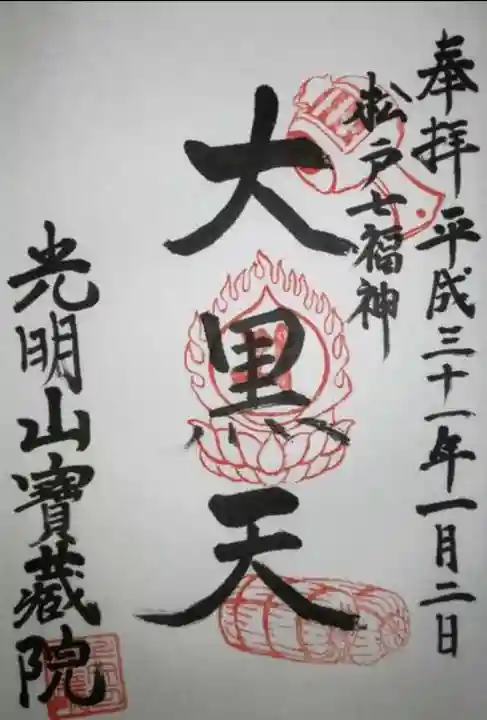 奉拝 平成三十一年一月二日
松戸七福神
大黒天
光明山寶蔵院